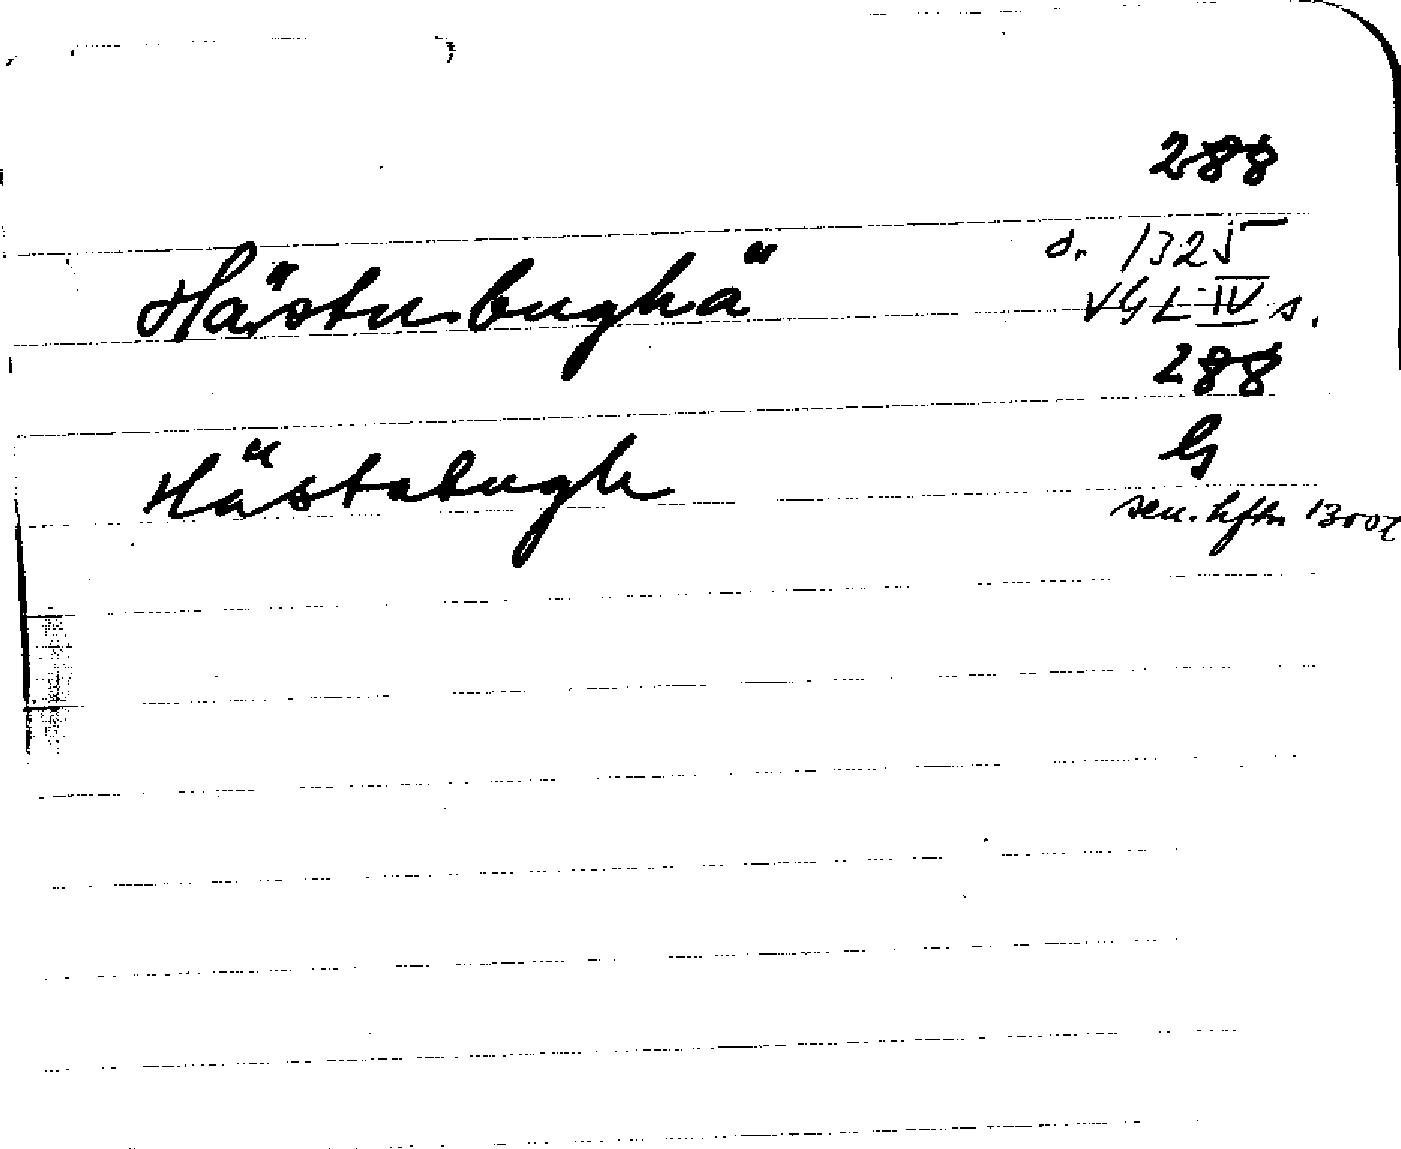 288
Hästu bughä d. 1325
VGL IV s.
288
Hästabugh G
sen. hftn 1300t